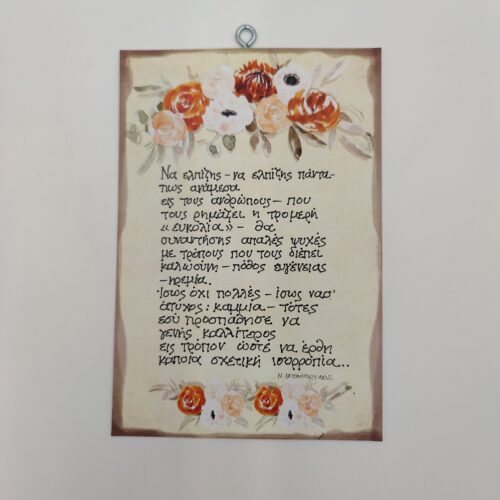 Να ελπίζης – να ελπίζης πάντα –
πως ανάμεσα
εις τους ανθρώπους – που
τους ρημάζει η τρομερή
«ευκολία» – θα
συναντήσης απαλές ψυχές
με τρόπους που τους διέπει
καλωσύνη – πόθος ευγένειας
– ηρεμία.
Ίσως όχι πολλές – ίσως νασ'
άτυχος: καμμία – τότες
εσύ προσπάθησε να
γενής καλλίτερος
εις τρόπον ώστε να έρθη
κάποια σχετική ισορροπία...
Ν. ΕΓΓΟΝΟΠΟΥΛΟΣ